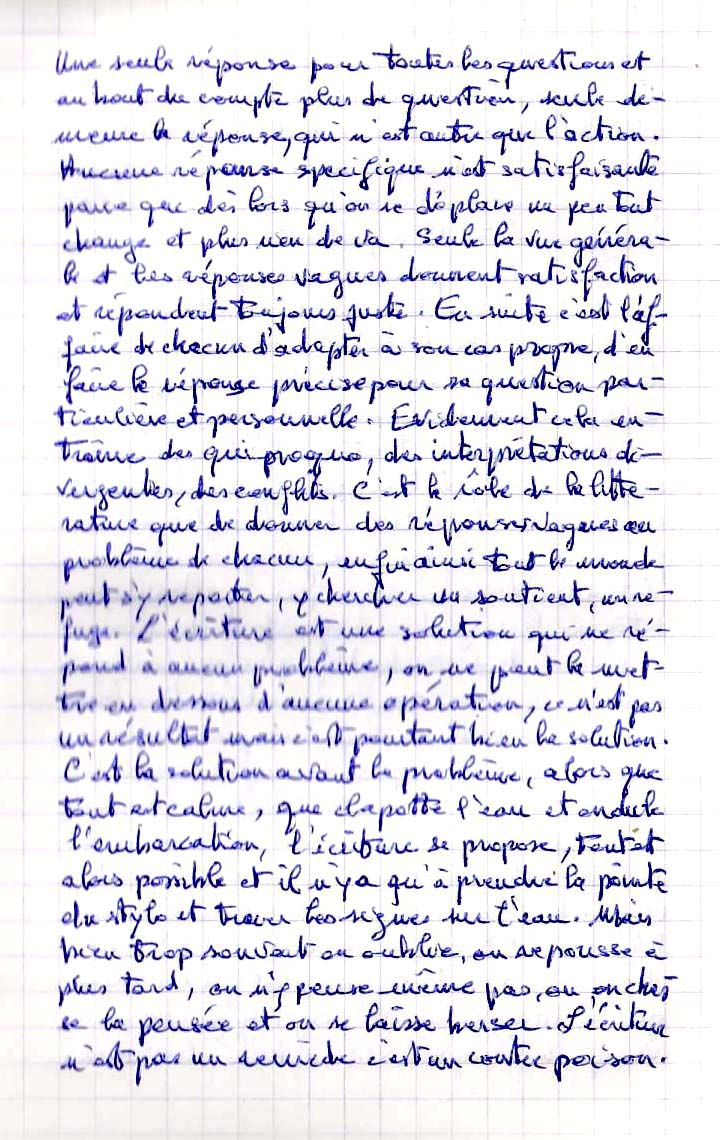 Une seule réponse pour toutes les questions et
au bout du compte plus de question, seule de-
meure la réponse, qui n'est autre que l'action.
Aucune réponse specifique n'est satisfaisante
parce que dès lors qu'on se déplace un peu tout
change et plus rien ne va. Seule la vue généra-
le et les réponses vagues donnent satisfaction
et répondent toujours juste. Ensuite c'est l'af-
faire de chacun d'adapter à son cas propre, d'en
faire la réponse précise pour sa question par-
ticulière et personnelle. Evidemment cela en-
traîne des qui proquo, des interprétations di-
vergentes, des conflits. C'est le rôle de la litté-
rature que de donner des réponses vagues au
problème de chacun, enfin ainsi tout le monde
peut s'y reporter, y chercher un soutient, un re-
fuge. L'écriture est une solution qui ne ré-
pond à aucun problème, on ne peut la met-
tre en dessous d'aucune opération, ce n'est pas
un résultat mais c'est pourtant bien la solution.
C'est la solution avant le problème, alors que
tout est calme, que clapotte l'eau et ondule
l'embarcation, l'écriture se propose, tout est
alors possible et il n'y a qu'à prendre la pointe
du stylo et tracer les signes sur l'eau. Mais
bien trop souvent on oublie, on repousse à
plus tard, on n'y pense même pas, on
la pensée et on se laisse bercer. L'écriture
n'est pas un remède c'est un contre poison.